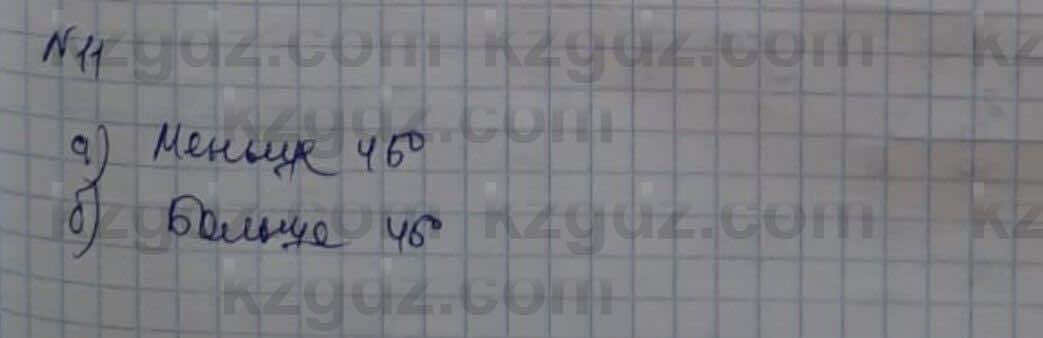 N11
kzgdz.com kzgdz.com kz
kzgdz.com
а) Меньше 45°
б) Больше 45°
kzgdz.com kzgdz.com kz
kzgdz.com